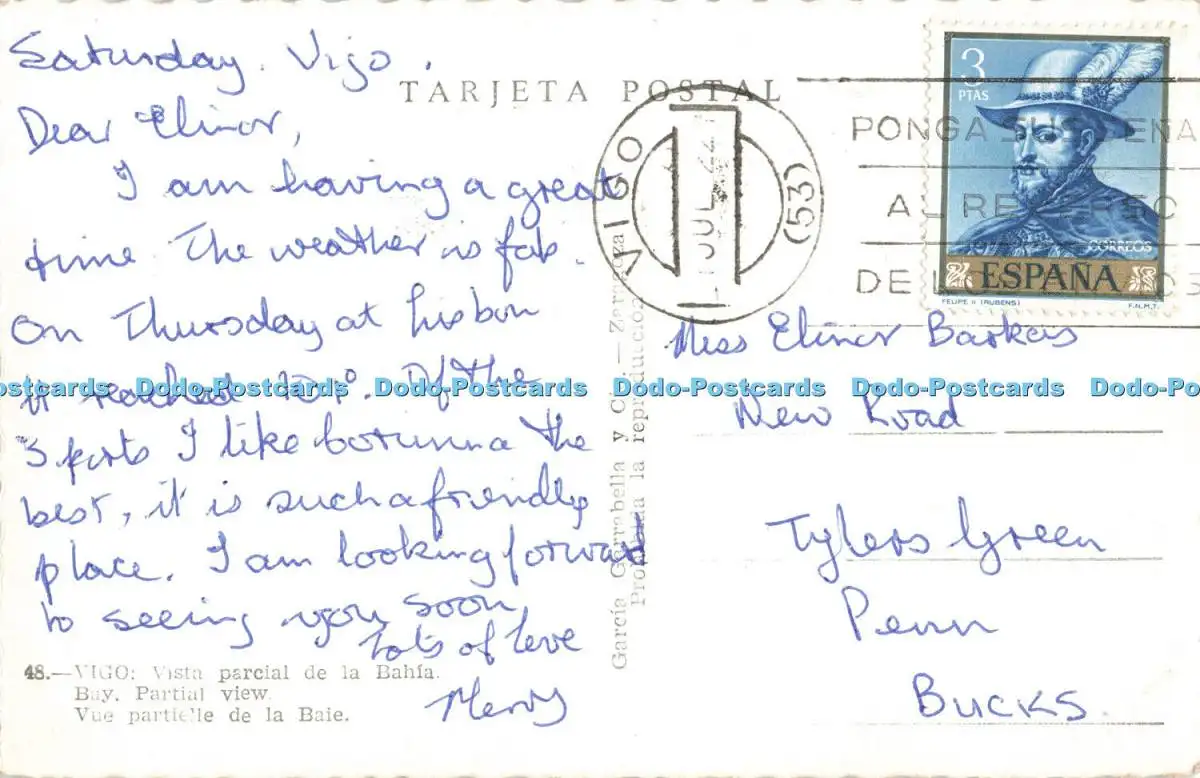 Saturday. Vigo.
TARJETA POSTAL
Dear Elinor,
I am having a great
time. The weather is fab.
On Thursday at Lisbon
it reached 100°. Of the
3 ports I like Corunna the
best, it is such a friendly
place. I am looking forward
to seeing you soon,
Lots of love
48.—VIGO: Vista parcial de la Bahía.
Bay. Partial view.
Vue partielle de la Baie.
García Garrabella y Cía.—Zaragoza
Prohibida la reproducción
VIGO
JUL
(53)
PONGA SUS
AL REVERSO
DE
3
PTAS
CORREOS
ESPAÑA
FELIPE II (RUBENS)
F.N.M.T.
Miss Elinor
New Road
Tylers Green
Penn
BUCKS.
Dodo-Postcards Dodo-Postcards Dodo-Postcards Dodo-Postcards Dodo-Postcards